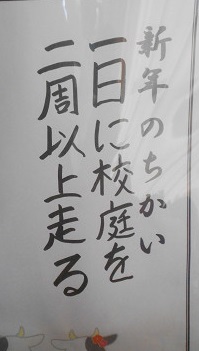 新年のちかい
一日に校庭を
二周以上走る